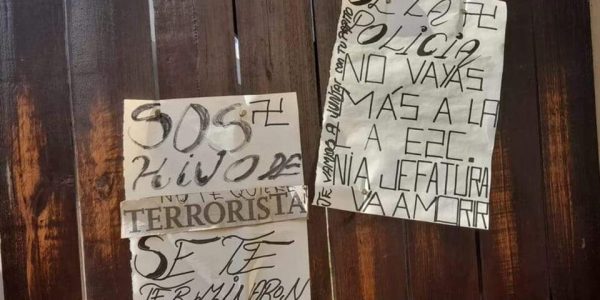 SOS
HIJO DE
NO TE QUIERE
TERRORISTA
SE TE
TERMINARON
DE LA
POLICIA
NO VAYAS
MÁS A LA
F A E2C.
NI A JEFATURA
VA A MORIR
TE VAMOS A JUNTAR CON TU PAPITO